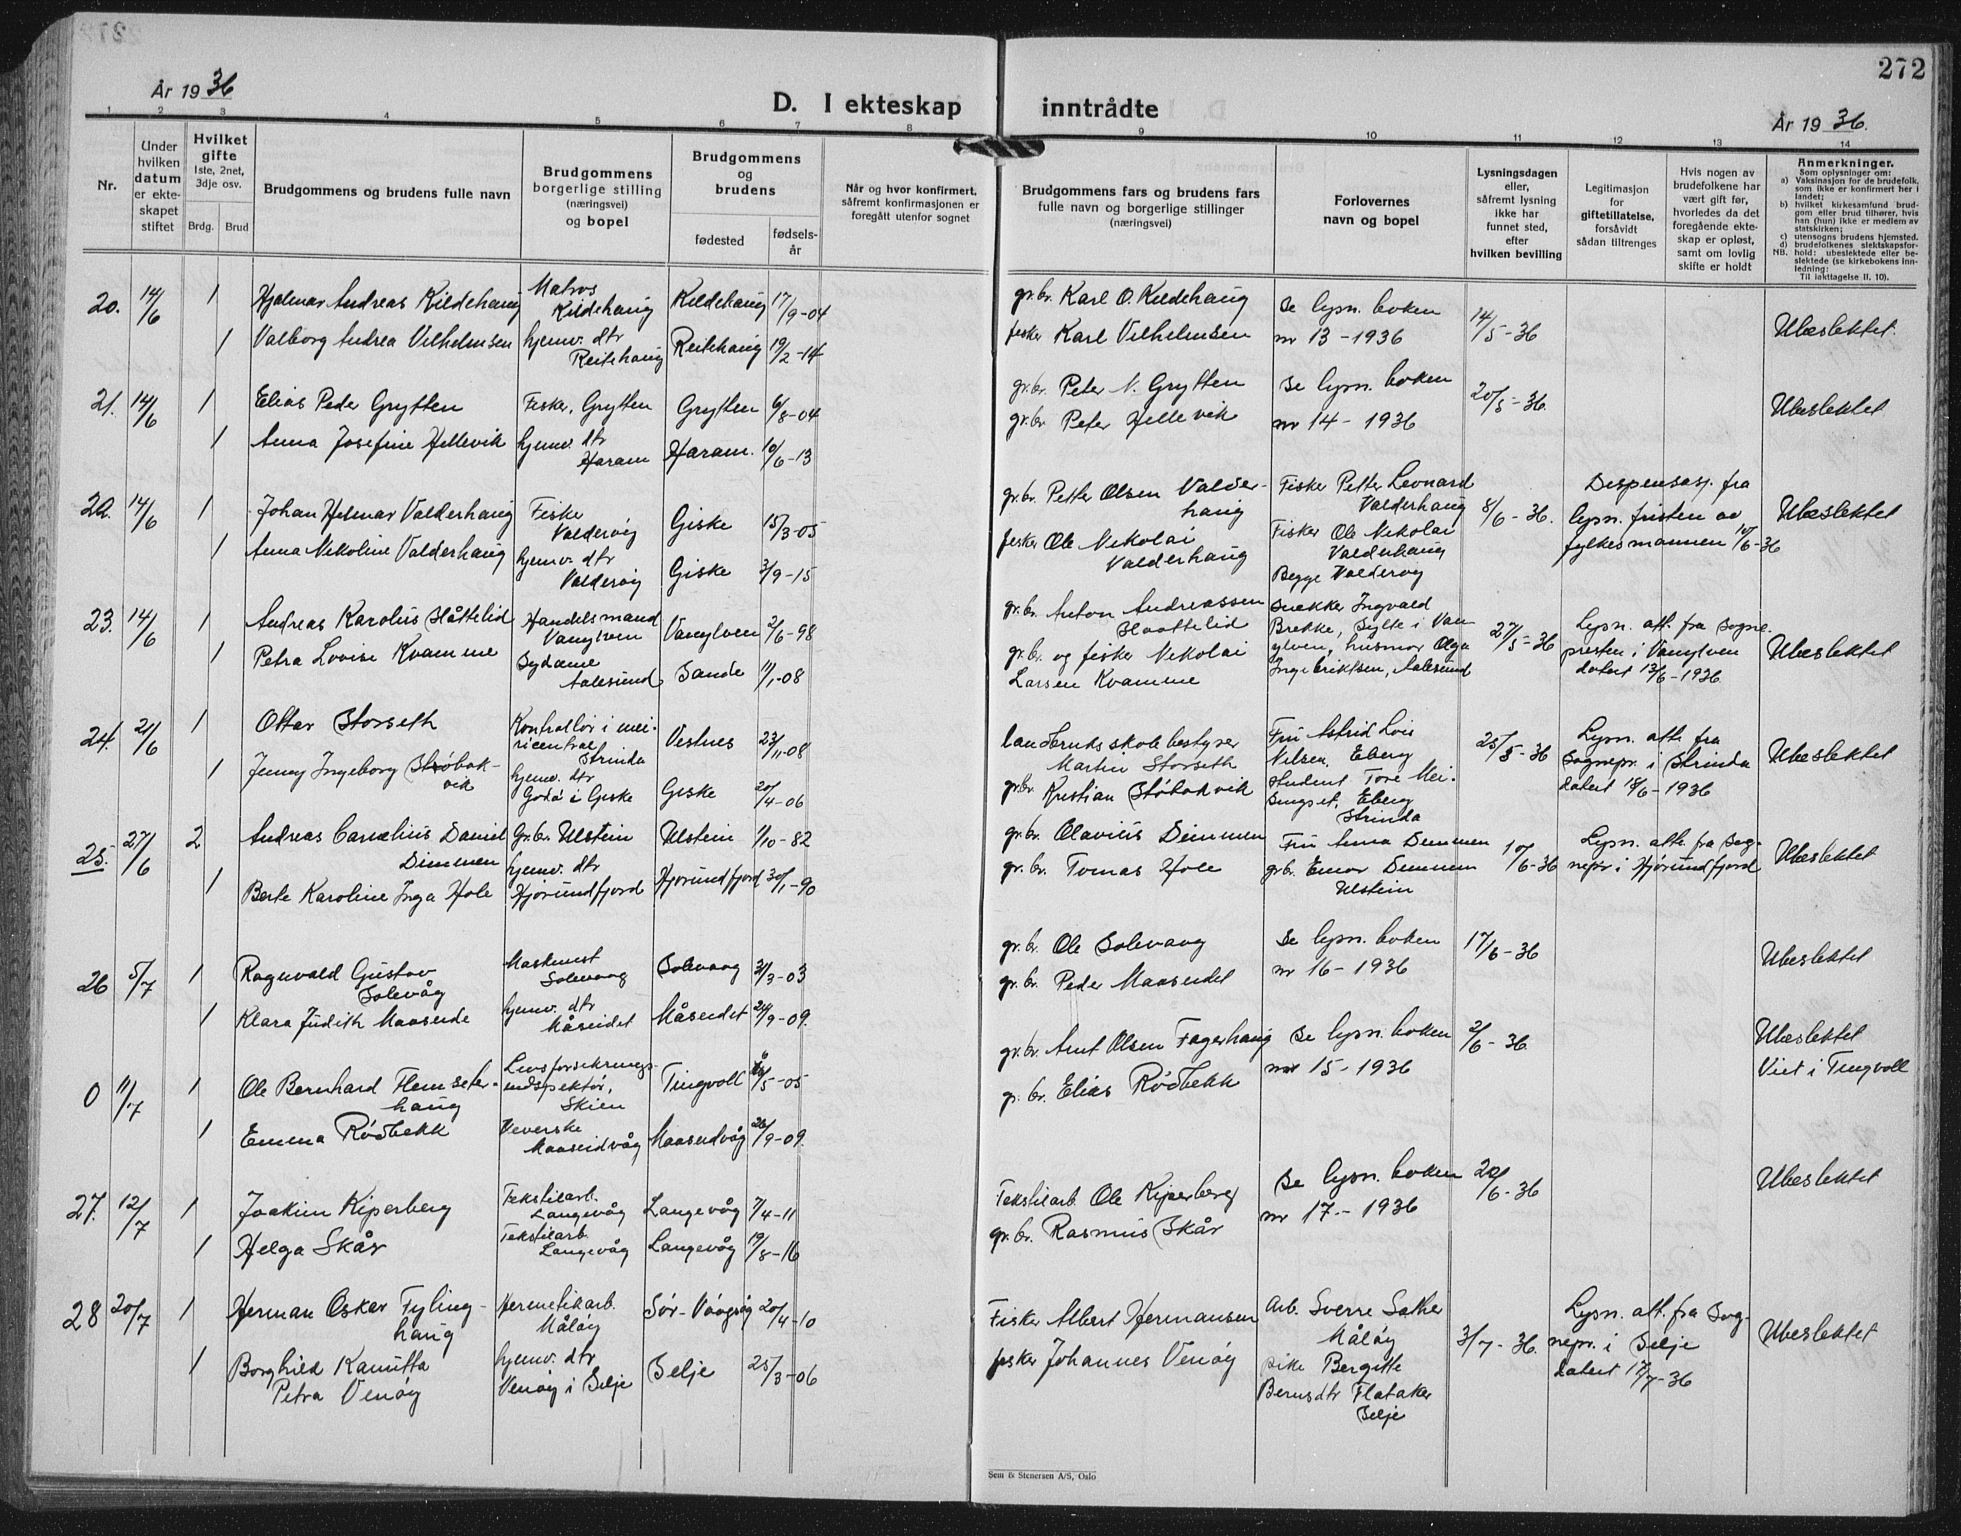 272
År 1936
D. I ekteskap inntrådte
År 1936.
1 2 3 4 5 6 7 8 9 10 11 12 13 14
Nr.
Under
hvilken
datum
er ekte-
skapet
stiftet
Hvilket
gifte
1ste, 2net,
3dje osv.
Brdg. Brud
Brudgommens og brudens fulle navn
Brudgommens
borgerlige stilling
(næringsvei)
og bopel
Brudgommens
og
brudens
fødested
fødsels-
år
Når og hvor konfirmert,
såfremt konfirmasjonen er
foregått utenfor sognet
Brudgommens fars og brudens fars
fulle navn og borgerlige stillinger
(næringsvei)
Forlovernes
navn og bopel
Lysningsdagen
eller,
såfremt lysning
ikke har
funnet sted,
efter
hvilken bevilling
Legitimasjon
for
giftetillatelse,
forsåvidt
sådan tiltrenges
Hvis nogen av
brudefolkene har
vært gift før,
hvorledes da det
foregående ekte-
skap er opløst,
samt om lovlig
skifte er holdt
Anmerkninger.
Som oplysninger om:
a) Vaksinasjon for de brudefolk,
som ikke er konfirmert her i
landet;
b) hvilket kirkesamfund brud-
gom eller brud tilhører, hvis
han (hun) ikke er medlem av
statskirken;
c) utensogns brudens hjemsted.
d) brudefolkenes slektskapsfor-
NB. hold: ubeslektede eller be-
slektede (se kirkebokens inn-
ledning:
Til iakttagelse II. 10).
20. 14/6 1 Hjalmar Andreas Kildehaug Matros Kildehaug Kildehaug 17/9-04 gr.br. Karl O. Kildehaug Se lysn. boken 14/5-36 Ubeslektet.
1 Valborg Andrea Vilhelmsen hjemv. dtr Reitehaug Reitehaug 19/2-14 fisker Karl Vilhelmsen nr 13-1936
21. 14/6 1 Elias Peder Grytten Fisker, Grytten Grytten 6/8-04 gr.br. Peter N. Grytten Se lysn. boken 20/5-36. Ubeslektet
1 Anna Josefine Hellevik hjemv. dtr Haram Haram. 10/6-13 gr.br. Peter Hellevik nr 14-1936
22. 14/6 1 Johan Helmar Valderhaug Fisker Valderøy Giske 15/3-05 gr.br. Petter Olsen Valder-
haug Fisker Petter Leonard Valderhaug 8/6-36. Dispensasj. fra
lysn. fristen av
fylkesmannen 10/6-36 Ubeslektet
1 Anna Nikoline Valderhaug hjemv. dtr Valderøy Giske 3/9-15 fisker Ole Nikolai
Valderhaug Fisker Ole Nikolai
Valderhaug
Begge Valderøy
23. 14/6 1 Andreas Karolus Håttelid Handelsmand Vanylven Vanylven 2/6-98 gr.br. Anton Andreassen
Haattelid Snekker Ingvald
Brekke, Sylte i Van
ylven, husmor Olga
Ingebriktsen, Aalesund 27/5-36 Lysn. att. fra Sogne-
presten i Vanylven
datert 13/6-1936. Ubeslektet
1 Petra Lovise Kvamme Sydame Aalesund Sande 11/1-08 gr.br. og fisker Nikolai
Larsen Kvamme
24. 21/6 1 Ottar Storseth Kontrollør i mei-
ricentral
Strinda Vestnes 23/11-08 landbruksskolebestyrer
Martin Storseth Fru Astrid Lois
Nilsen, Eberg
student Tore Mei-
singset, Eberg
Strinda 25/5-36 Lysn. att. fra
Sognepr. i Strinda
datert 18/6-1936 Ubeslektet
1 Jenny Ingeborg Støbak-
vik hjemv. dtr
Godø i Giske Giske 20/4-06 gr.br. Kristian Støbakvik
25. 27/6 2 Andreas Cornelius Daniel
Dimmen Gr.br. Ulstein Ulstein 1/10-82 gr.br. Olavius Dimmen Fru Anna Dimmen
grb. Einar Dimmen
Ulstein 10/6-36 Lysn. att. fra Sog-
nepr i Hjørundfjord Ubeslektet
1 Berte Karoline Inga Hole hjemv. dtr
Hjørundfjord Hjørundfjord 30/1-90 gr.br. Tomas Hole
26 5/7 1 Ragnvald Gustav
Solevåg Maskinist
Solevaag Solevaag 31/3-03 gr.br. Ole Solevaag Se lysn. boken
nr 16-1936 17/6-36 Ubeslektet
1 Klara Judith Maaseide hjemv. dtr
Måseidet Måseidet 24/9-09. gr.br. Peder Maaseidet
0 11/7 1 Ole Bernhard Flemseter-
haug Livsforsikrings-
inspektør,
Skien Tingvoll /5-05 gr.br. Arnt Olsen Fagerhaug Se lysn. boken
nr 15-1936 2/6-36. Ubeslektet
Viet i Tingvoll
1 Emma Rødbekk Veverske
Maaseidvåg Maaseidvåg 26/9-09. gr.br. Elias Rødbekk
27. 12/7 1 Joakim Kiperberg Tekstilarb.
Langevåg Langevåg 7/4-11 Tekstilarb. Ole Kiperberg Se lysn. boken
nr 17-1936 22/6-36 Ubeslektet
1 Helga Skår Tekstilarb.
Langevåg Langevåg 19/8-16 gr.br. Rasmus Skår
28 20/7 1 Herman Oskar Tyling-
haug Hermetikarb.
Måløy Sør-Vaagsøy 20/4-10 Fisker Albert Hermansen Arb. Sverre Sather
Måløy
pike Bergitte
Berntsdtr Flataker
Selje 3/7-36. Lysn. att. fra Sog-
nepr. i Selje
datert 17/7-36 Ubeslektet
1 Borghild Kamitta
Petra Venøy hjemv. dtr
Venøy i Selje Selje 25/3-06 fisker Johannes Venøy
Sem & Stenersen A/S, Oslo